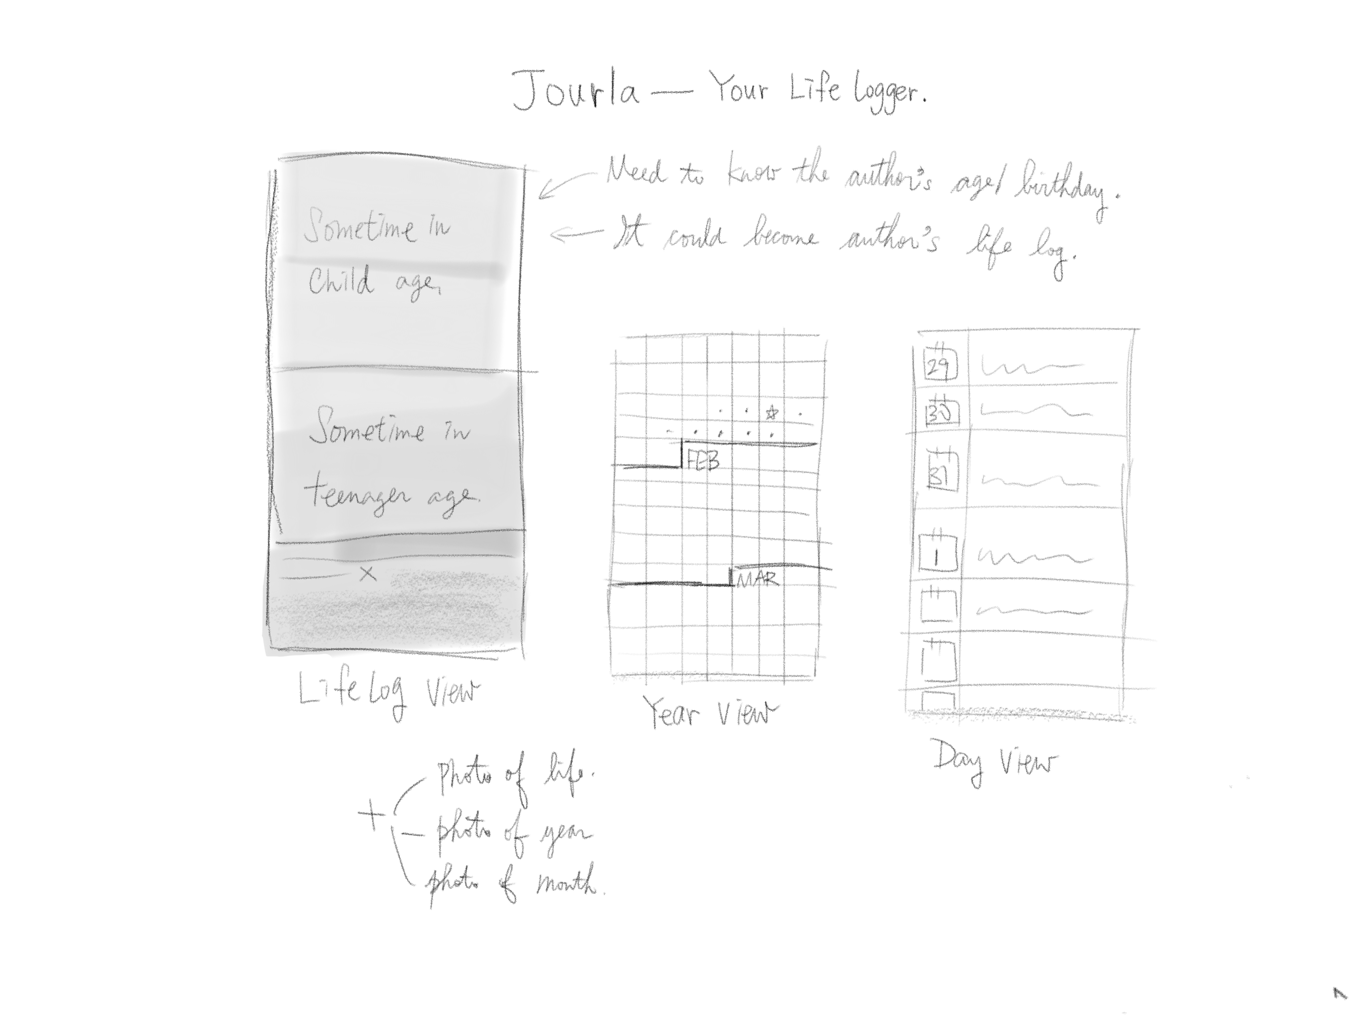 Jourla — Your Life logger.
Need to know the author's age/ birthday.
It could become author's life log.
Sometime in
Child age,
Sometime in
teenager age.
×
Life Log View
FEB
MAR
Year View
29
30
31
1
Day View
+
photo of life.
photo of year
photo of month.
7